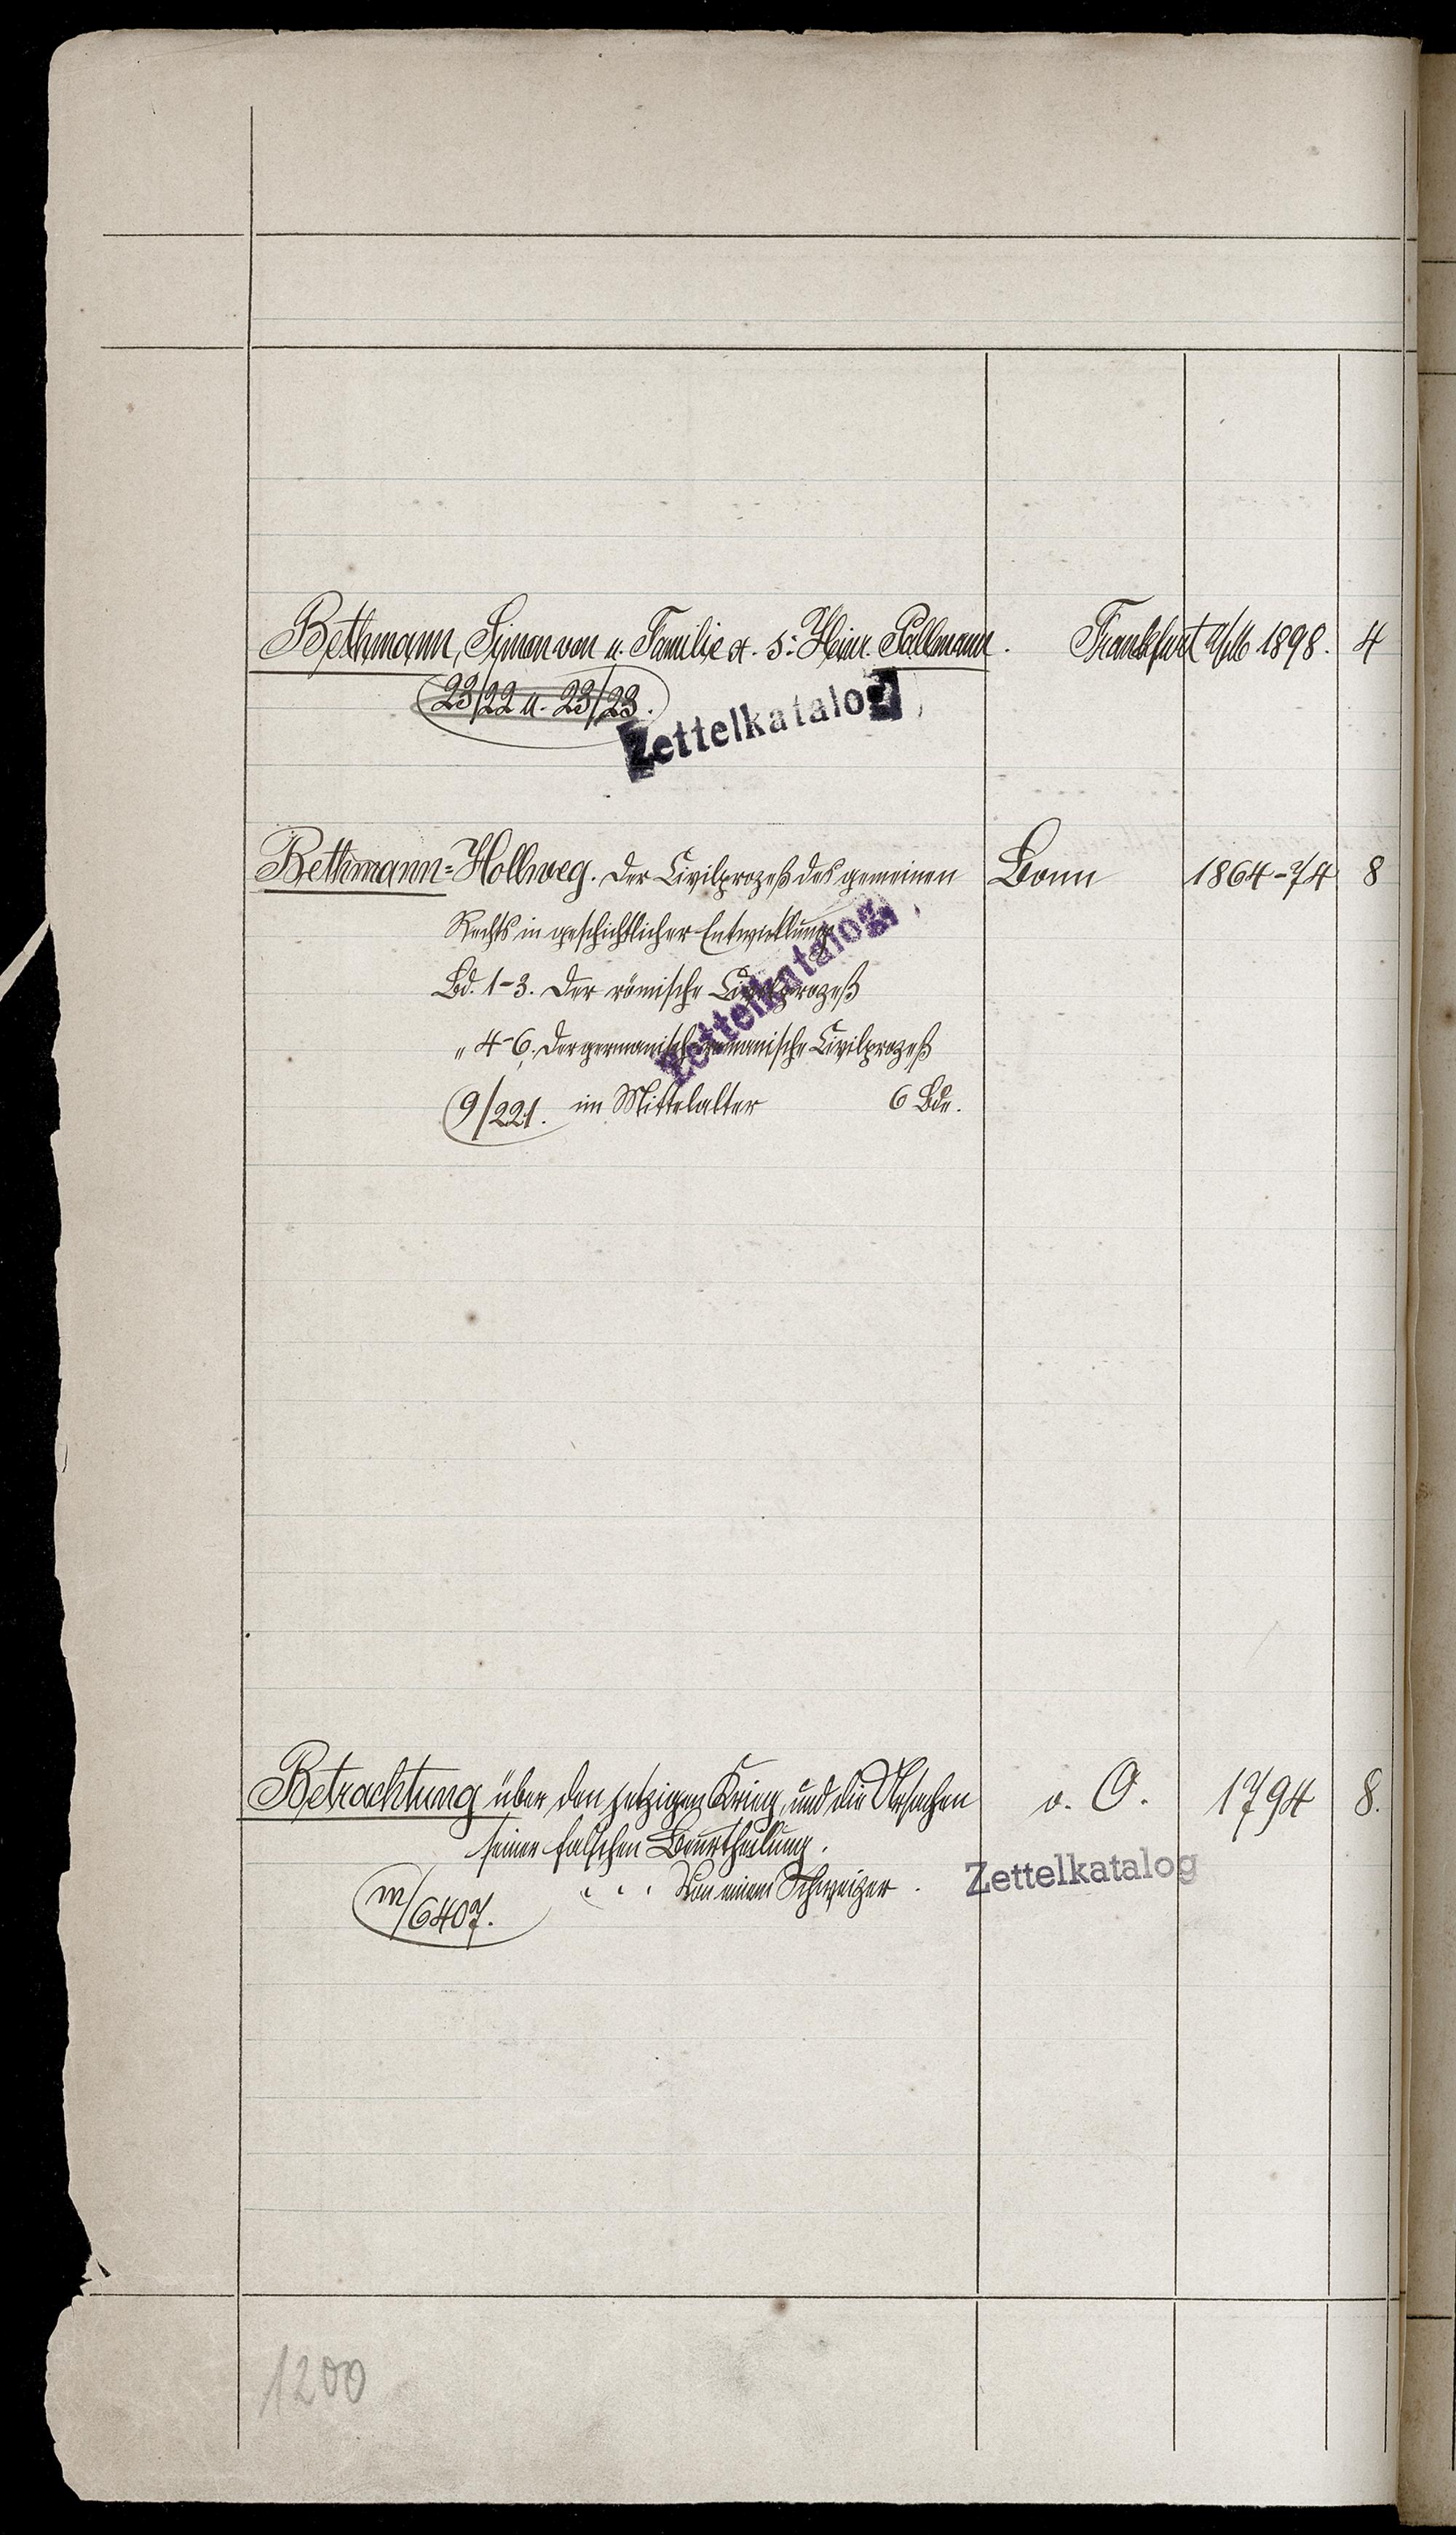 Bethmann, Simon von u. Familie s: Heinr. Pallmann. Frankfurt a/M 1898. 4
23/22 u. 23/23.
Zettelkatalog
Bethmann-Hollweg. Der Civilprozeß des gemeinen Bonn 1864-74 8
Rechts in geschichtlicher Entwicklung
Bd. 1-3. Der römische Civilprozeß
" 4-6. Der germanisch-romanische Civilprozeß
9/221. im Mittelalter 6 Bde.
Zettelkatalog
Betrachtung über den jetzigen Krieg, und die Ursachen o. O. 1794 8.
seiner falschen Beurtheilung.
Von einem Schweizer.
Zettelkatalog
m/6407.
1200